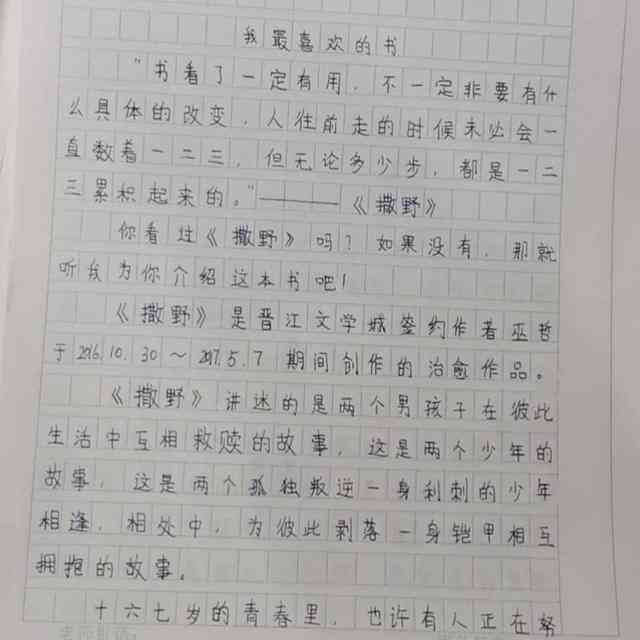 我最喜欢的书
"书看了一定有用，不一定非要有什
么具体的改变，人往前走的时候未必会一
直数着一二三，但无论多少步，都是一二
三累积起来的。"————《撒野》
你看过《撒野》吗？如果没有，那就
听我为你介绍这本书吧！
《撒野》是晋江文学城签约作者巫哲
于2016.10.30～2017.5.7期间创作的治愈作品。
《撒野》讲述的是两个男孩子在彼此
生活中互相救赎的故事，这是两个少年的
故事，这是两个孤独叛逆一身利刺的少年
相逢，相处中，为彼此剥落一身铠甲相互
拥抱的故事。
十六七岁的青春里，也许有人正在努